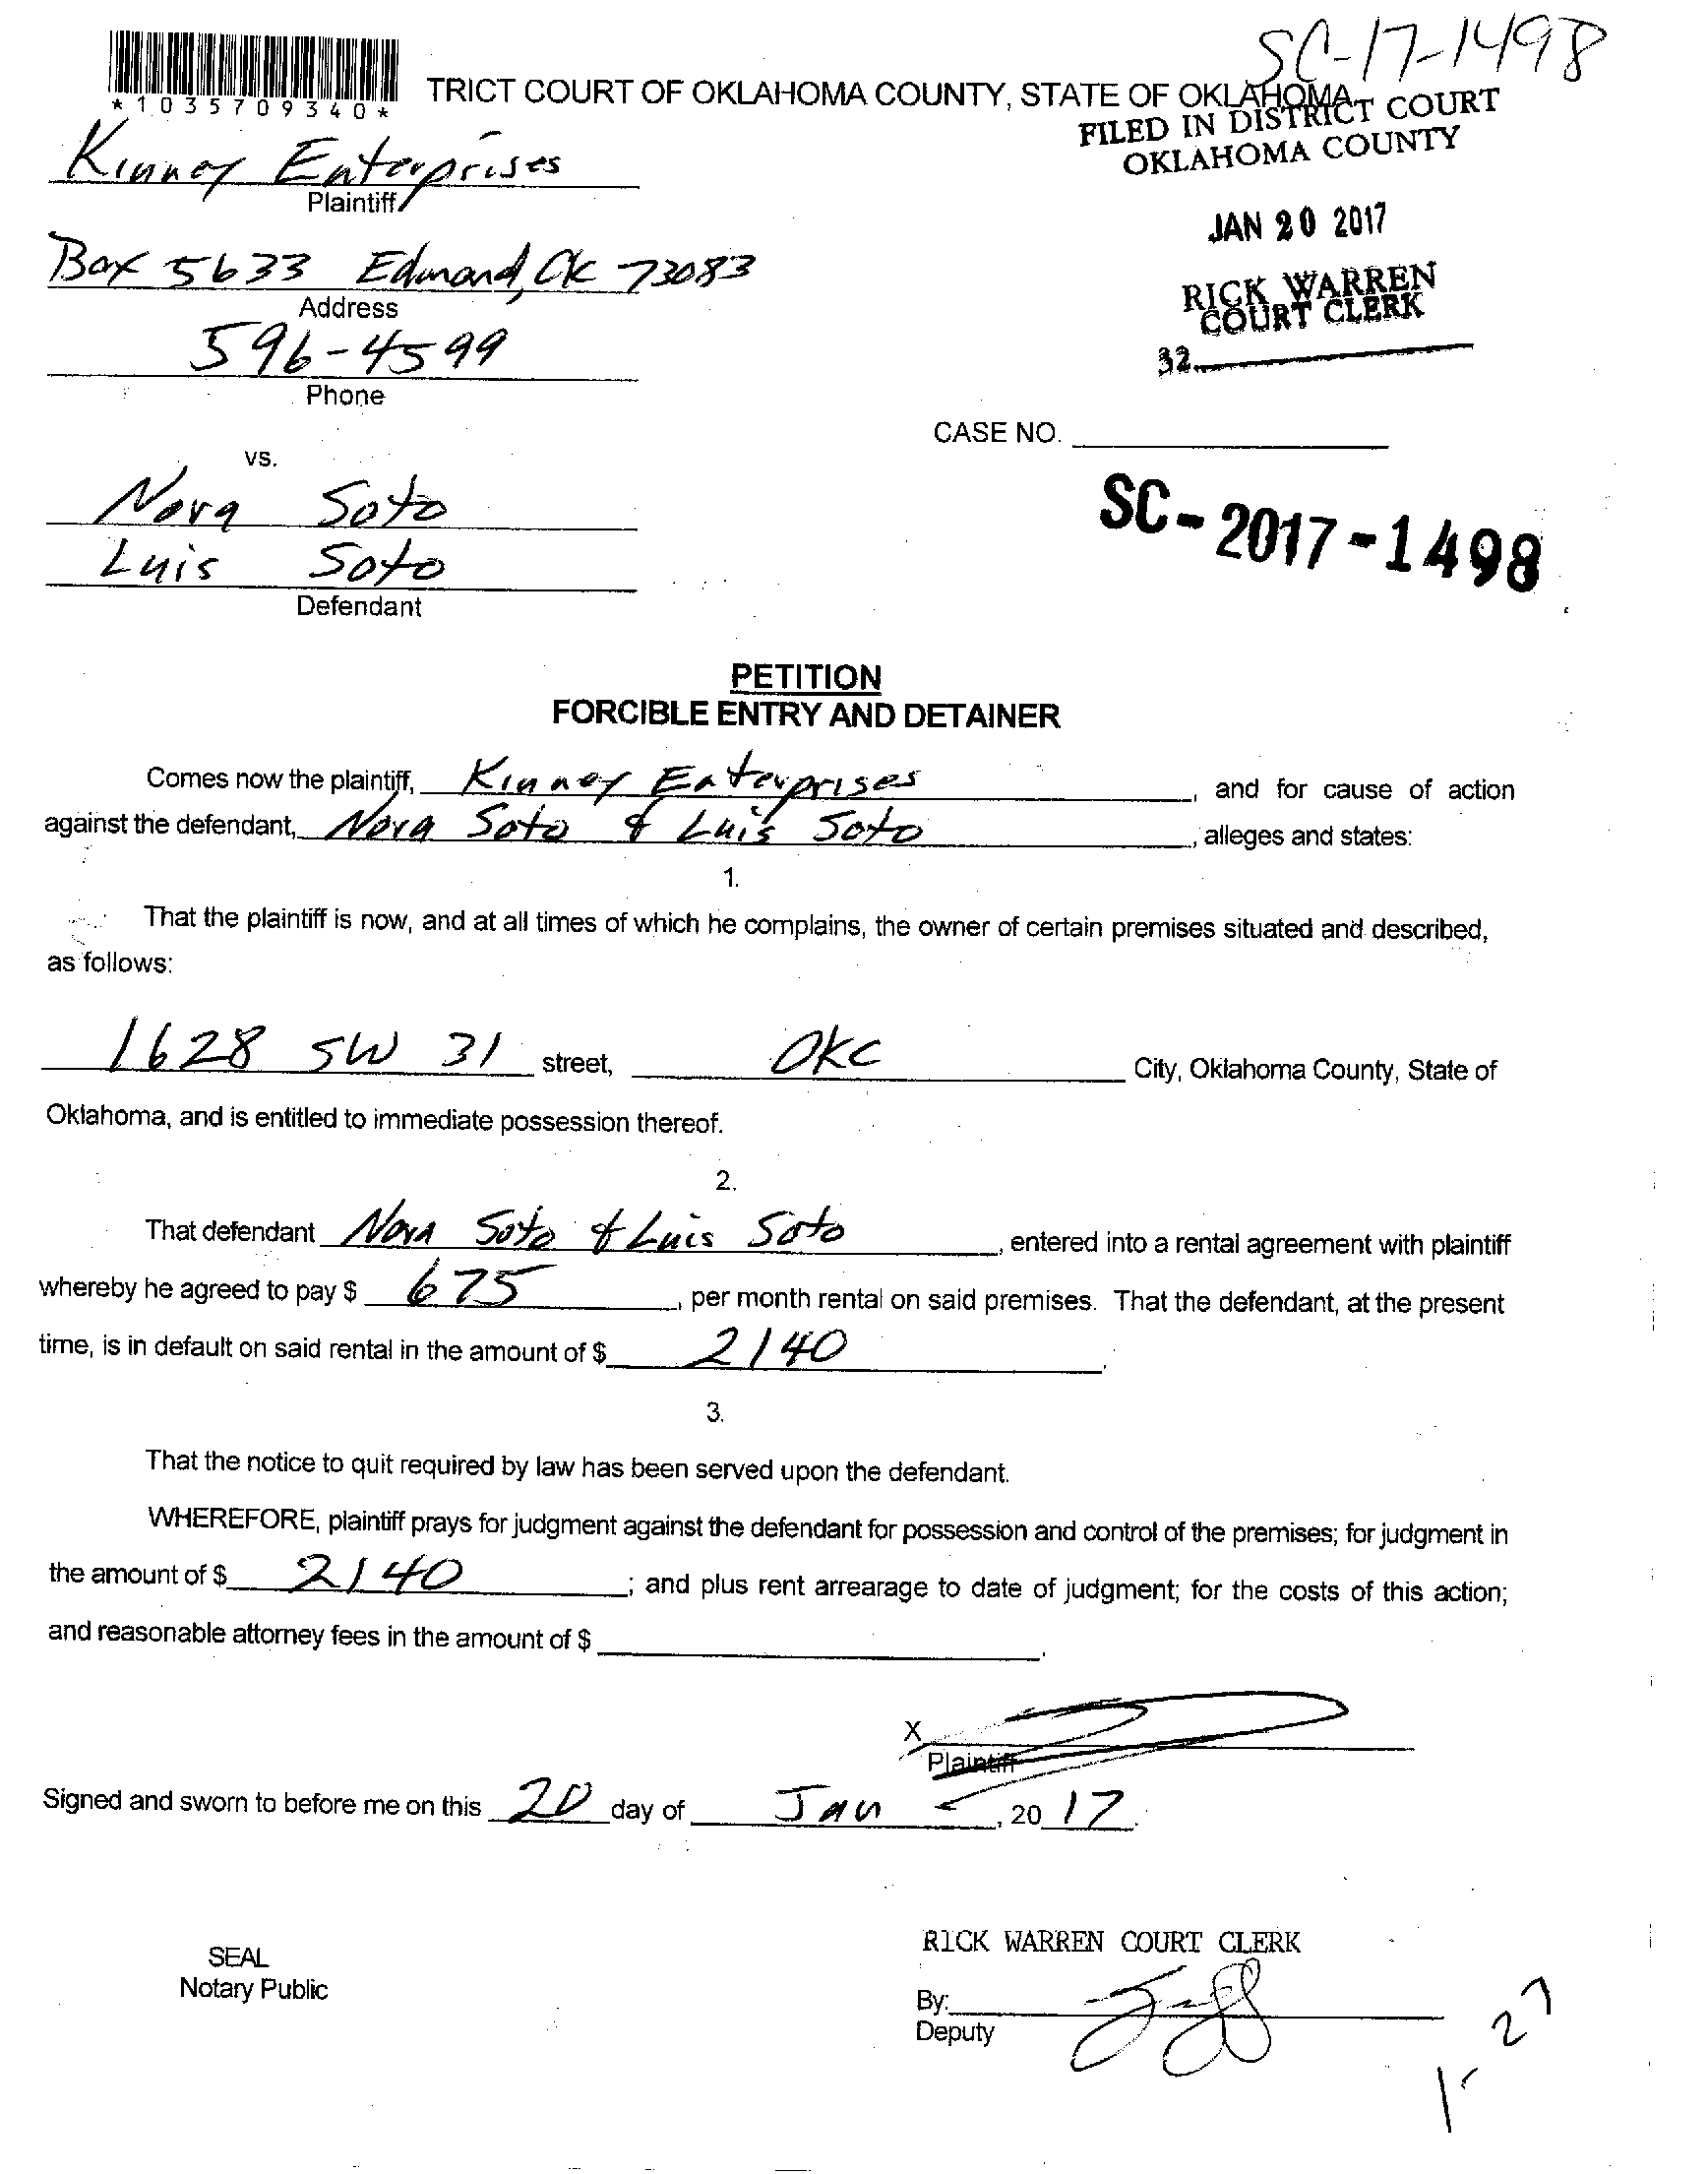 SC-17-1498
*1035709340*
TRICT COURT OF OKLAHOMA COUNTY, STATE OF OKLAHOMA
FILED IN DISTRICT COURT
OKLAHOMA COUNTY
Kinney Enterprises
Plaintiff
JAN 20 2017
Box 5633 Edmond, OK 73083
Address
RICK WARREN
COURT CLERK
596-4599
Phone
32
CASE NO.
vs.
Nora Soto
Luis Soto
Defendant
SC-2017-1498
PETITION
FORCIBLE ENTRY AND DETAINER
Comes now the plaintiff, Kinney Enterprises, and for cause of action
against the defendant, Nora Soto & Luis Soto, alleges and states:
1.
That the plaintiff is now, and at all times of which he complains, the owner of certain premises situated and described,
as follows:
1628 SW 31 street, OKC City, Oklahoma County, State of
Oklahoma, and is entitled to immediate possession thereof.
2.
That defendant Nora Soto & Luis Soto, entered into a rental agreement with plaintiff
whereby he agreed to pay $ 675, per month rental on said premises. That the defendant, at the present
time, is in default on said rental in the amount of $ 2140.
3.
That the notice to quit required by law has been served upon the defendant.
WHEREFORE, plaintiff prays for judgment against the defendant for possession and control of the premises; for judgment in
the amount of $ 2140; and plus rent arrearage to date of judgment; for the costs of this action;
and reasonable attorney fees in the amount of $ .
X
Plaintiff
Signed and sworn to before me on this 20 day of Jan, 20 17.
RICK WARREN COURT CLERK
SEAL
Notary Public
By:
Deputy
1-27